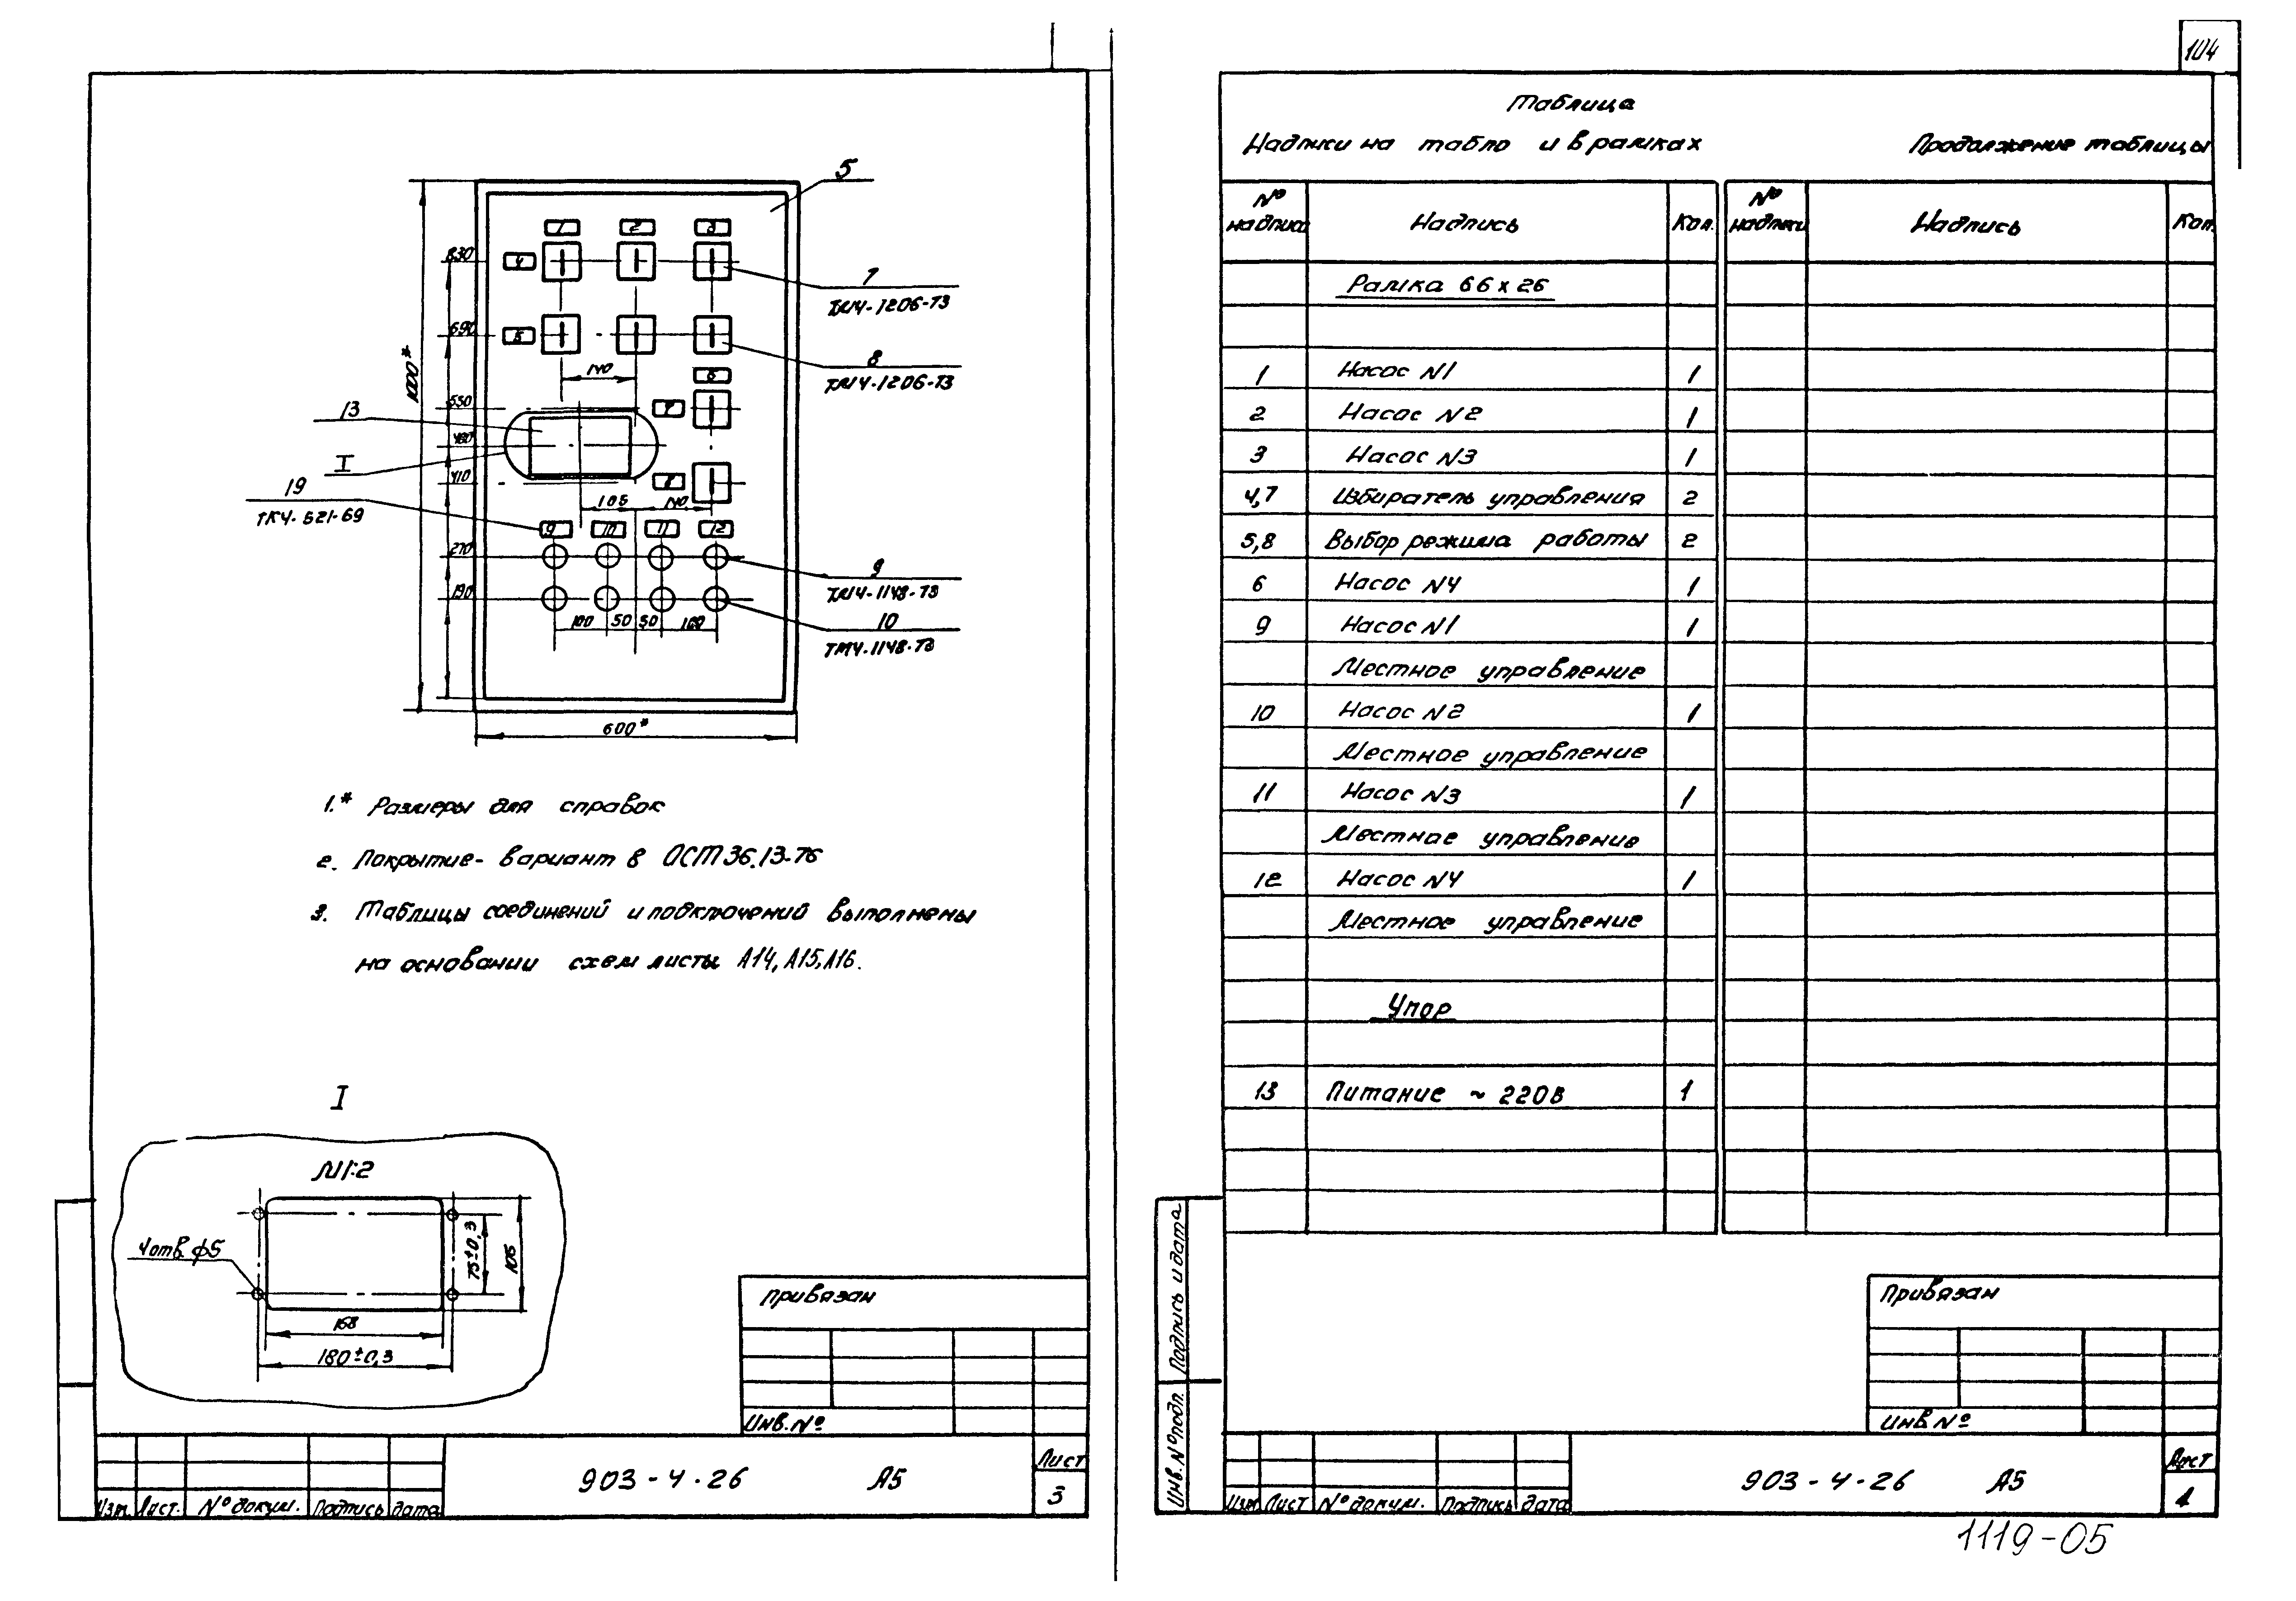 104
5
1 2 3
830
4
7
ТМ4-1206-73
690
5
8
ТМ4-1206-73
140
6
1000*
550
7
13
480
I
410
8
19
ТК4-521-69
105 140
9 10 11 12
270
9
ТМ4-1148-73
190
100 50 50 100
10
ТМ4-1148-73
600*
1.* Размеры для справок
2. Покрытие- вариант в ОСТ36.13-76
3. Таблицы соединений и подключений выполнены
на основании схем листы А14, А15, А16.
I
М1:2
4отв. ф5
75±0,3
106
168
180±0,3
Привязан
Инв.№
Изм. Лист. № докум. Подпись дата
903-4-26 А5
Лист
3
Таблица
Надписи на табло и в рамках
Продолжение таблицы
№ надписи Надпись Кол. № надписи Надпись Кол.
Рамка 66 х 26
1 Насос N1 1
2 Насос N2 1
3 Насос N3 1
4,7 Избиратель управления 2
5,8 Выбор режима работы 2
6 Насос N4 1
9 Насос N1 1
Местное управление
10 Насос N2 1
Местное управление
11 Насос N3 1
Местное управление
12 Насос N4 1
Местное управление
Упор
13 Питание ~ 220В 1
Подпись и дата
Инв.№подл.
Привязан
Инв №
Изм Лист № докум. Подпись дата
903-4-26 А5
Лист
4
1119-05